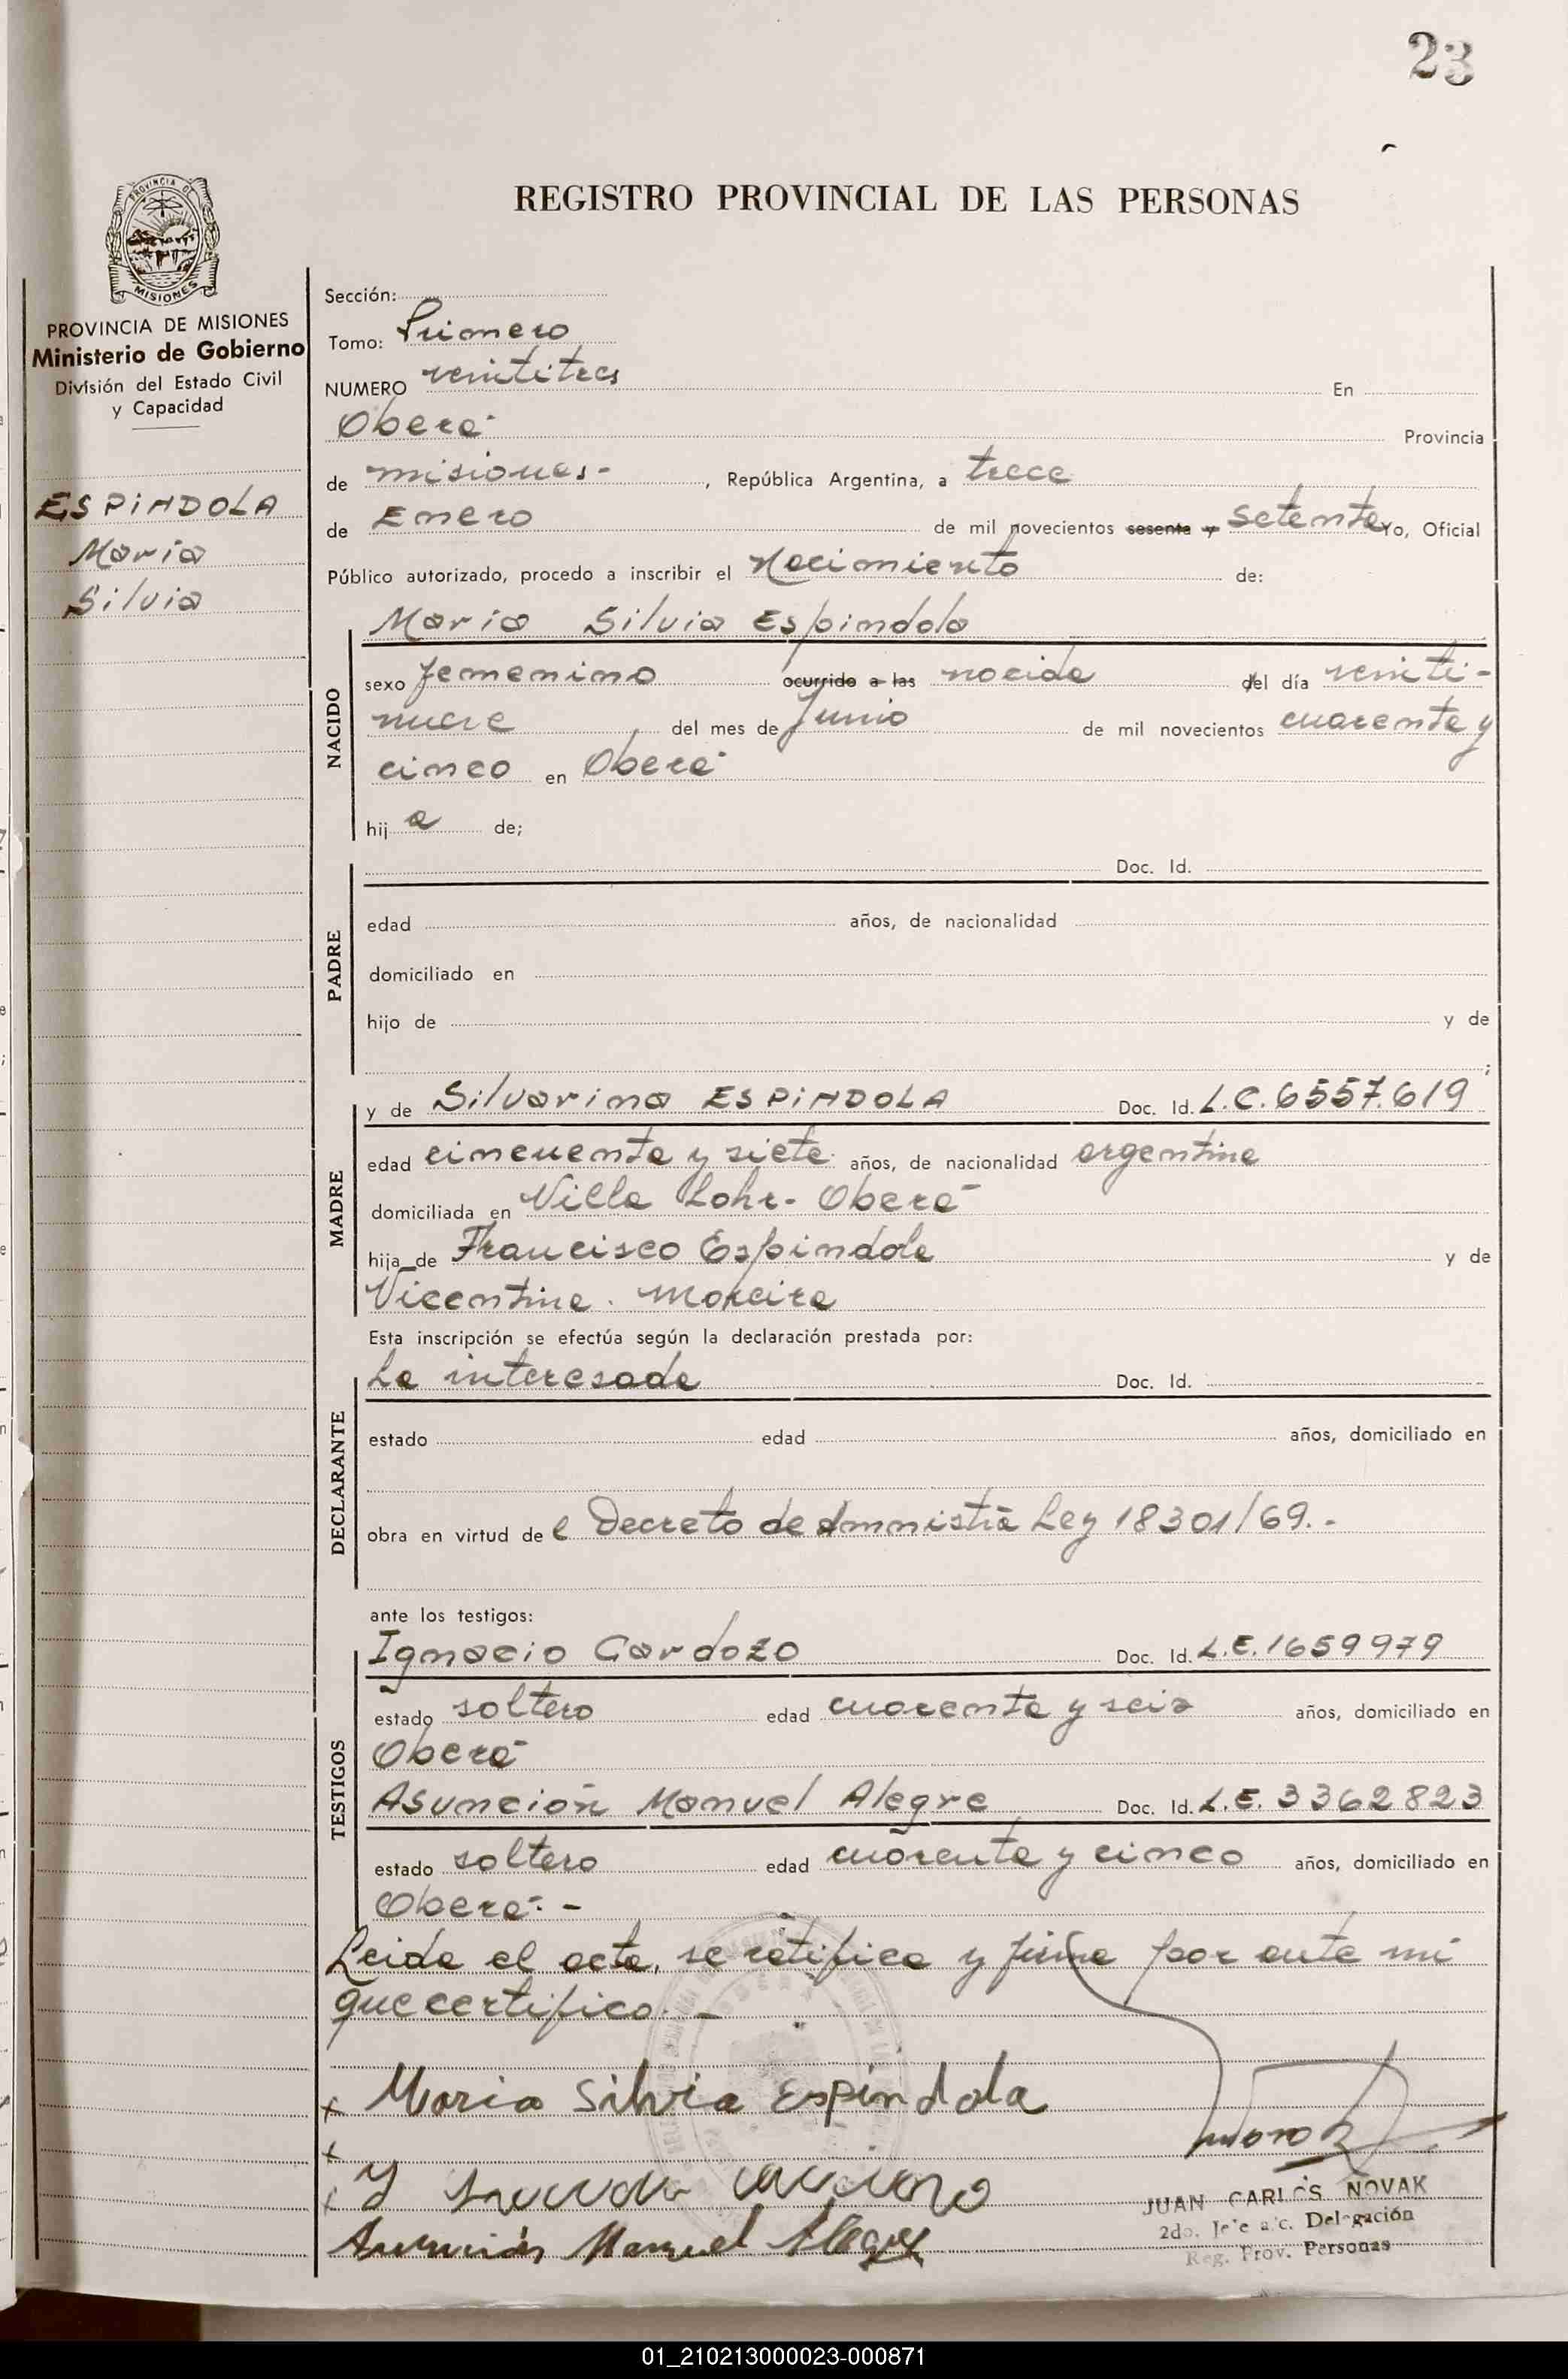 23
REGISTRO PROVINCIAL DE LAS PERSONAS
PROVINCIA DE
MISIONES
PROVINCIA DE MISIONES
Ministerio de Gobierno
División del Estado Civil
y Capacidad
ESPINDOLA
Maria
Silvia
Sección:
Tomo: Primero
NUMERO veintitres En
Oberá Provincia
de misiones.- , República Argentina, a trece
de Enero de mil novecientos sesenta y setenta Yo, Oficial
Público autorizado, procedo a inscribir el Nacimiento de:
Maria Silvia Espindola
NACIDO
sexo femenino ocurrido a las nacida del día veinti-
nueve del mes de Junio de mil novecientos cuarenta y
cinco en Oberá
hij a de;
PADRE
Doc. Id.
edad años, de nacionalidad
domiciliado en
hijo de y de
;
MADRE
y de Silvarina ESPINDOLA Doc. Id. L.C. 6557.619
edad cincuenta y siete años, de nacionalidad argentina
domiciliada en Villa Lohr- Oberá
hija de Francisco Espindola y de
Vicentina. Moreira
Esta inscripción se efectúa según la declaración prestada por:
DECLARANTE
La interesada Doc. Id.
estado edad años, domiciliado en
obra en virtud de l Decreto de Amnistia Ley 18301/69.-
ante los testigos:
TESTIGOS
Ignacio Cardozo Doc. Id. L.E. 1659979
estado soltero edad cuarenta y seis años, domiciliado en
Oberá
Asunción Manuel Alegre Doc. Id. L.E. 3362823
estado soltero edad cuarenta y cinco años, domiciliado en
Oberá.-
Leida el acta, se ratifica y firma por ante mi
que certifico.-
x Maria Silvia Espindola
x
x
Asunción Manuel Alegre
JUAN CARLOS NOVAK
2do. Jefe a/c. Delegación
Reg. Prov. Personas
01_210213000023-000871